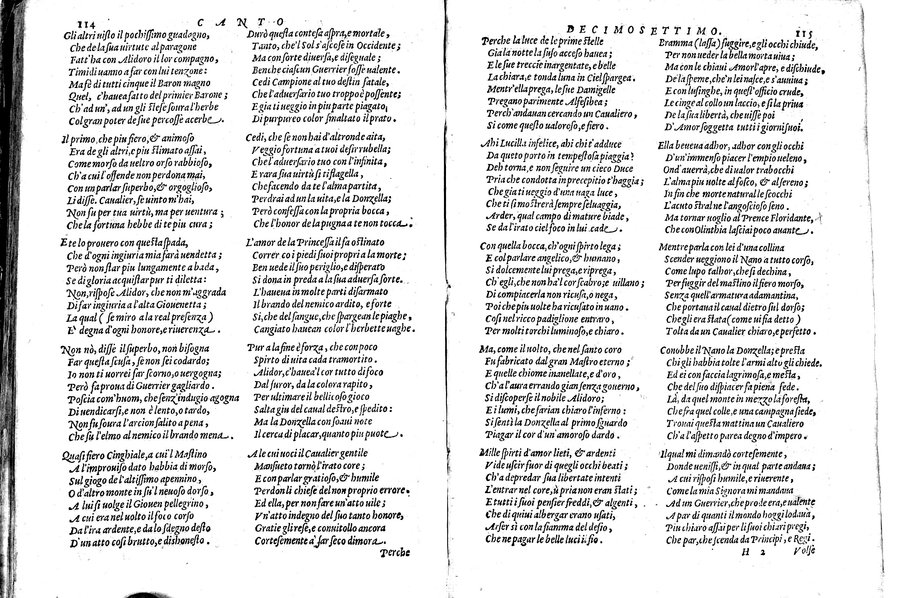 114 CANTO
Gli altri uisto il pochissimo guadagno,
Che de la sua uirtute al paragone
Fatt'ha con Alidoro il lor compagno,
Timidi uanno a far con lui tenzone:
Ma se di tutti cinque il Baron magno
Quel, c'hauea fatto del primier Barone;
Ch'ad un', ad un gli stese soura l'herbe
Col gran poter de sue percosse acerbe.
Il primo, che piu fiero, & animoso
Era de gli altri, e piu stimato assai,
Come morso da ueltro orso rabbioso,
Ch'a cui l'offende non perdona mai,
Con un parlar superbo, & orgoglioso,
Li disse. Caualier, se uinto m'hai,
Non fu per tua uirtù, ma per uentura;
Che la fortuna hebbe di te piu cura;
E te lo prouero con questa spada,
Che d'ogni ingiuria mia farà uendetta;
Però non star piu lungamente a bada,
Se di gloria acquistar pur ti diletta:
Non, rispose Alidor, che non m'aggrada
Di far ingiuria a l'alta Giouenetta;
La qual (se miro a la real presenza)
E' degna d'ogni honore, e riuerenza.
Non nò, disse il superbo, non bisogna
Far questa scusa, se non sei codardo;
Io non ti uorrei far scorno, o uergogna;
Però fa proua di Guerrier gagliardo.
Poscia com'huom, che senz'indugio agogna
Di uendicarsi, e non è lento, o tardo,
Non fu soura l'arcion salito a pena,
Che su l'elmo al nemico il brando mena.
Quasi fiero Cinghiale, a cui'l Mastino
A l'improuiso dato habbia di morso,
Sul giogo de l'altissimo apennino,
O d'altro monte in su'l neuoso dorso,
A lui si uolge il Giouen pellegrino,
A cui era nel uolto il foco corso
Da l'ira ardente, e da lo sdegno desto
D'un atto cosi brutto, e dishonesto.
Durò questa contesa aspra, e mortale,
Tanto, che'l Sol s'ascose in Occidente;
Ma con sorte diuersa, e diseguale;
Benche ciascun Guerrier fosse ualente.
Cedi Campione al tuo destin fatale,
Che l'aduersario tuo troppo è possente;
E gia ti ueggio in piu parte piagato,
Di purpureo color smaltato il prato.
Cedi, che se non hai d'altronde aita,
Veggio fortuna a tuoi desir rubella;
Che l'aduersario tuo con l'infinita,
E rara sua uirtù si ti flagella,
Che facendo da te l'alma partita,
Perdrai ad un la uita, e la Donzella;
Però confessa con la propria bocca,
Che l'honor de la pugna a te non tocca.
L'amor de la Princessa il fa ostinato
Correr co i piedi suoi propri a la morte;
Ben uede il suo periglio, e disperato
Si dona in preda a la sua aduersa sorte.
L'haueua in molte parti disarmato
Il brando del nemico ardito, e forte
Si, che del sangue, che spargean le piaghe,
Cangiato hauean color l'herbette uaghe.
Pur a la fine è forza, che con poco
Spirto di uita cada tramortito.
Alidor, c'hauea'l cor tutto di foco
Dal furor, da la colora rapito,
Per ultimare il bellicoso gioco
Salta giu del caual destro, e spedito:
Ma la Donzella con soaui note
Il cerca di placar, quanto piu puote.
A le cui uoci il Caualier gentile
Mansueto tornò l'irato core;
E con parlar gratioso, & humile
Perdon li chiese del non proprio errore.
Ed ella, per non fare un'atto uile;
Vn'atto indegno del suo tanto honore,
Gratie gli rese, e conuitollo ancora
Cortesemente a far seco dimora.
Perche
DECIMOSETTIMO. 115
Perche la luce de le prime stelle
Gia la notte la suso acceso hauea;
E le sue treccie inargentate, e belle
La chiara, e tonda luna in Ciel spargea.
Mentr'ella prega, le sue Damigelle
Pregano parimente Alfesibea;
Perch'andauan cercando un Caualiero,
Si come questo ualoroso, e fiero.
Ahi Lucilla infelice, ahi chi t'adduce
Da queto porto in tempestosa piaggia?
Deh torna, e non seguire un cieco Duce
Pria che condotta in precepitio t'haggia;
Che gia ti ueggio d'una uaga luce,
Che ti si mostrerà sempre seluaggia,
Arder, qual campo di mature biade,
Se da l'irato ciel foco in lui cade.
Con quella bocca, ch'ogni spirto lega;
E col parlare angelico, & humano,
Si dolcemente lui prega, e riprega,
Ch'egli, che non ha'l cor scabro, e uillano;
Di compiacerla non ricusa, o nega,
Poi che piu uolte ha ricusato in uano.
Cosi nel ricco padiglione entraro,
Per molti torchi luminoso, e chiaro.
Ma, come il uolto, che nel santo coro
Fu fabricato dal gran Mastro eterno;
E quelle chiome inanellate, e d'oro,
Ch'a l'aura errando gian senza gouerno,
Si discoperse il nobile Alidoro;
E i lumi, che farian chiaro l'inferno:
Si sentì la Donzella al primo sguardo
Piagar il cor d'un'amoroso dardo.
Mille spirti d'amor lieti, & ardenti
Vide uscir fuor di quegli occhi beati;
Ch'a depredar sua libertate intenti
L'entrar nel core, ù pria non eran stati;
E tutti i suoi pensier freddi, & algenti,
Che di quiui albergar erano usati,
Arser si con la fiamma del desio,
Che ne pagar le belle luci il fio.
Eramma (lassa) fuggire, e gli occhi chiude,
Per non ueder la bella mort a uiua;
Ma con le chiaui Amor l'apre, e dischiude,
De la speme, che'n lei nasce, e s'auuiua;
E con lusinghe, in quest'officio crude,
Le cinge al collo un laccio, e fi la priua
De la sua libertà, che uisse poi
D'Amor soggetta tutti i giorni suoi.
Ella beueua adhor, adhor con gli occhi
D'un'immenso piacer l'empio ueleno,
Ond'auerrà, che di ualor trabocchi
L'alma piu uolte al fosco, & al sereno;
In fin che morte natural le scocchi
L'acuto stral ne l'angoscioso seno.
Ma tornar uoglio al Prence Floridante,
Che con Olinthia lasciai poco auante.
Mentre parla con lei d'una collina
Scender ueggiono il Nano a tutto corso,
Come lupo talhor, che si dechina,
Per fuggir del mastino il fiero morso,
Senza quell'armatura adamantina,
Che portaua il caual dietro sul dorso;
Che gli era stata (come ui fia detto)
Tolta da un Caualier chiaro, e perfetto.
Conobbe il Nano la Donzella; e presta
Chi gli habbia tolte l'armi alto gli chiede.
Ed ei con faccia lagrimosa, e mesta,
Che del suo dispiacer fa piena fede.
Là, da quel monte in mezzo la foresta,
Che fra quel colle, e una campagna siede,
Trouai questa mattina un Caualiero
Ch'a l'aspetto parea degno d'impero.
Il qual mi dimandò cortesemente,
Donde uenissi, & in qual parte andaua;
A cui risposi humile, e riuerente,
Come la mia Signora mi mandaua
Ad un Guerrier, che prode era, e ualente
A par di quanti il mondo hoggi lodaua,
Piu chiaro assai per li suoi chiari pregi,
Che par, che scenda da Principi, e Regi.
H 2 Volse